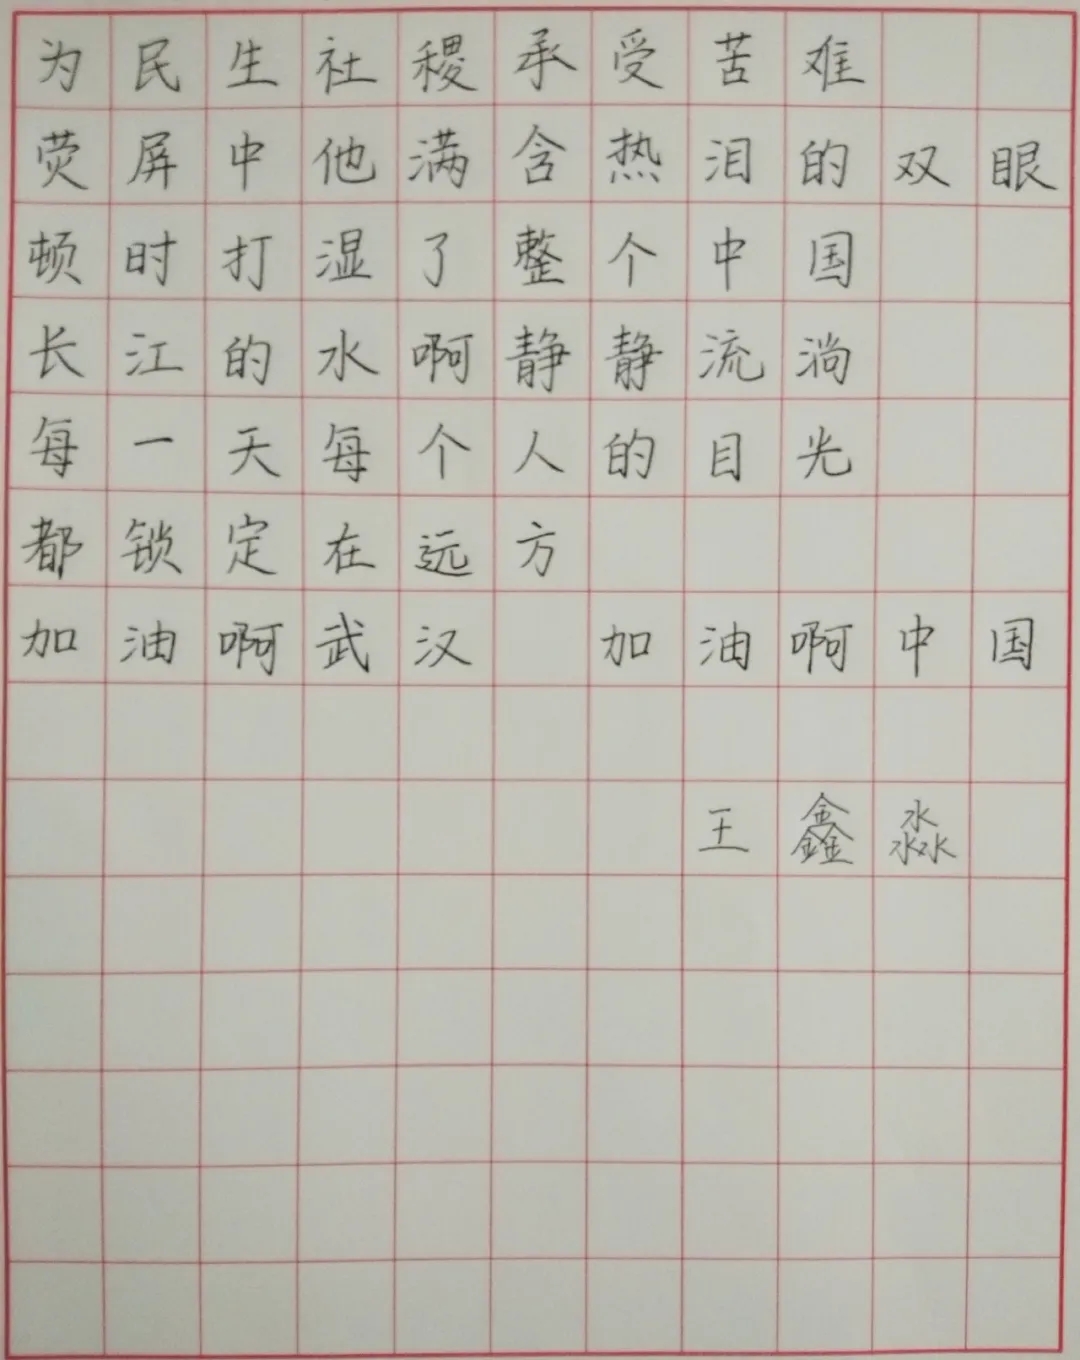 为民生社稷承受苦难
荧屏中他满含热泪的双眼
顿时打湿了整个中国
长江的水啊静静流淌
每一天每个人的目光
都锁定在远方
加油啊武汉 加油啊中国
王鑫淼